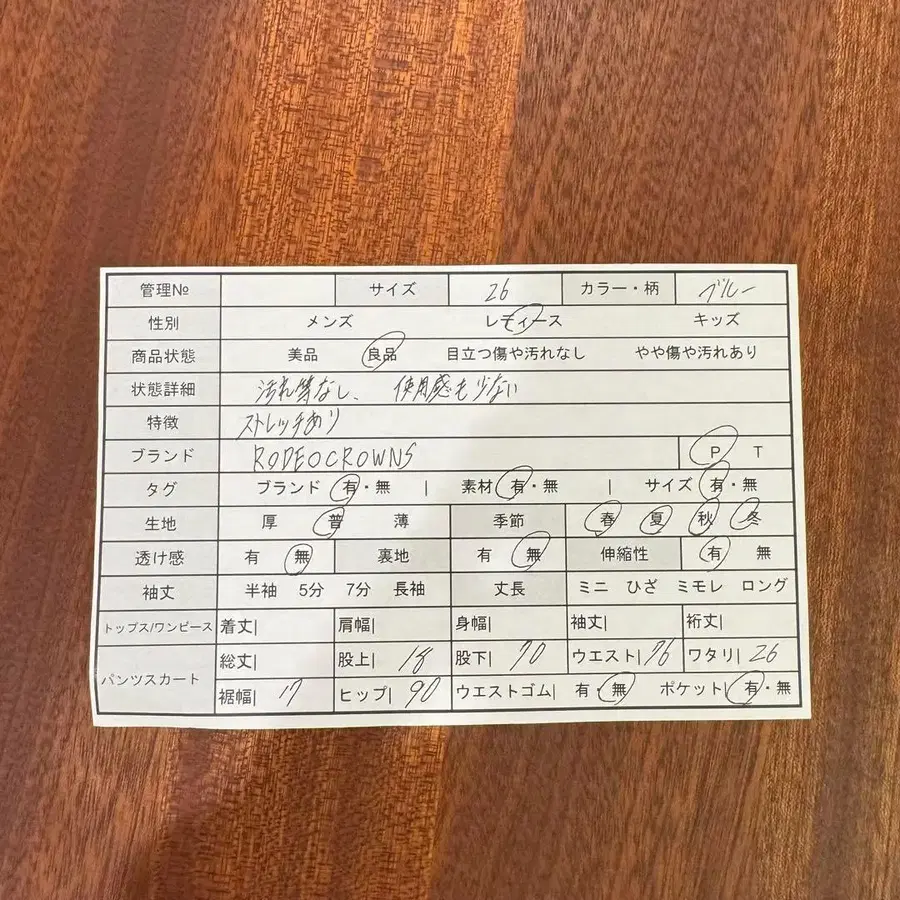 管理№ サイズ 26 カラー・柄 ブルー
性別 メンズ レディース キッズ
商品状態 美品 良品 目立つ傷や汚れなし やや傷や汚れあり
状態詳細 汚れ等なし、 使用感も少ない
特徴 ストレッチあり
ブランド RODEOCROWNS P T
タグ ブランド 有・無 | 素材 有・無 | サイズ 有・無
生地 厚 普 薄 季節 春 夏 秋 冬
透け感 有 無 裏地 有 無 伸縮性 有 無
袖丈 半袖 5分 7分 長袖 丈長 ミニ ひざ ミモレ ロング
トップス/ワンピース 着丈| 肩幅| 身幅| 袖丈| 裄丈|
パンツスカート 総丈| 股上| 18 股下| 70 ウエスト| 76 ワタリ| 26
裾幅| 17 ヒップ| 90 ウエストゴム| 有・無 ポケット| 有・無